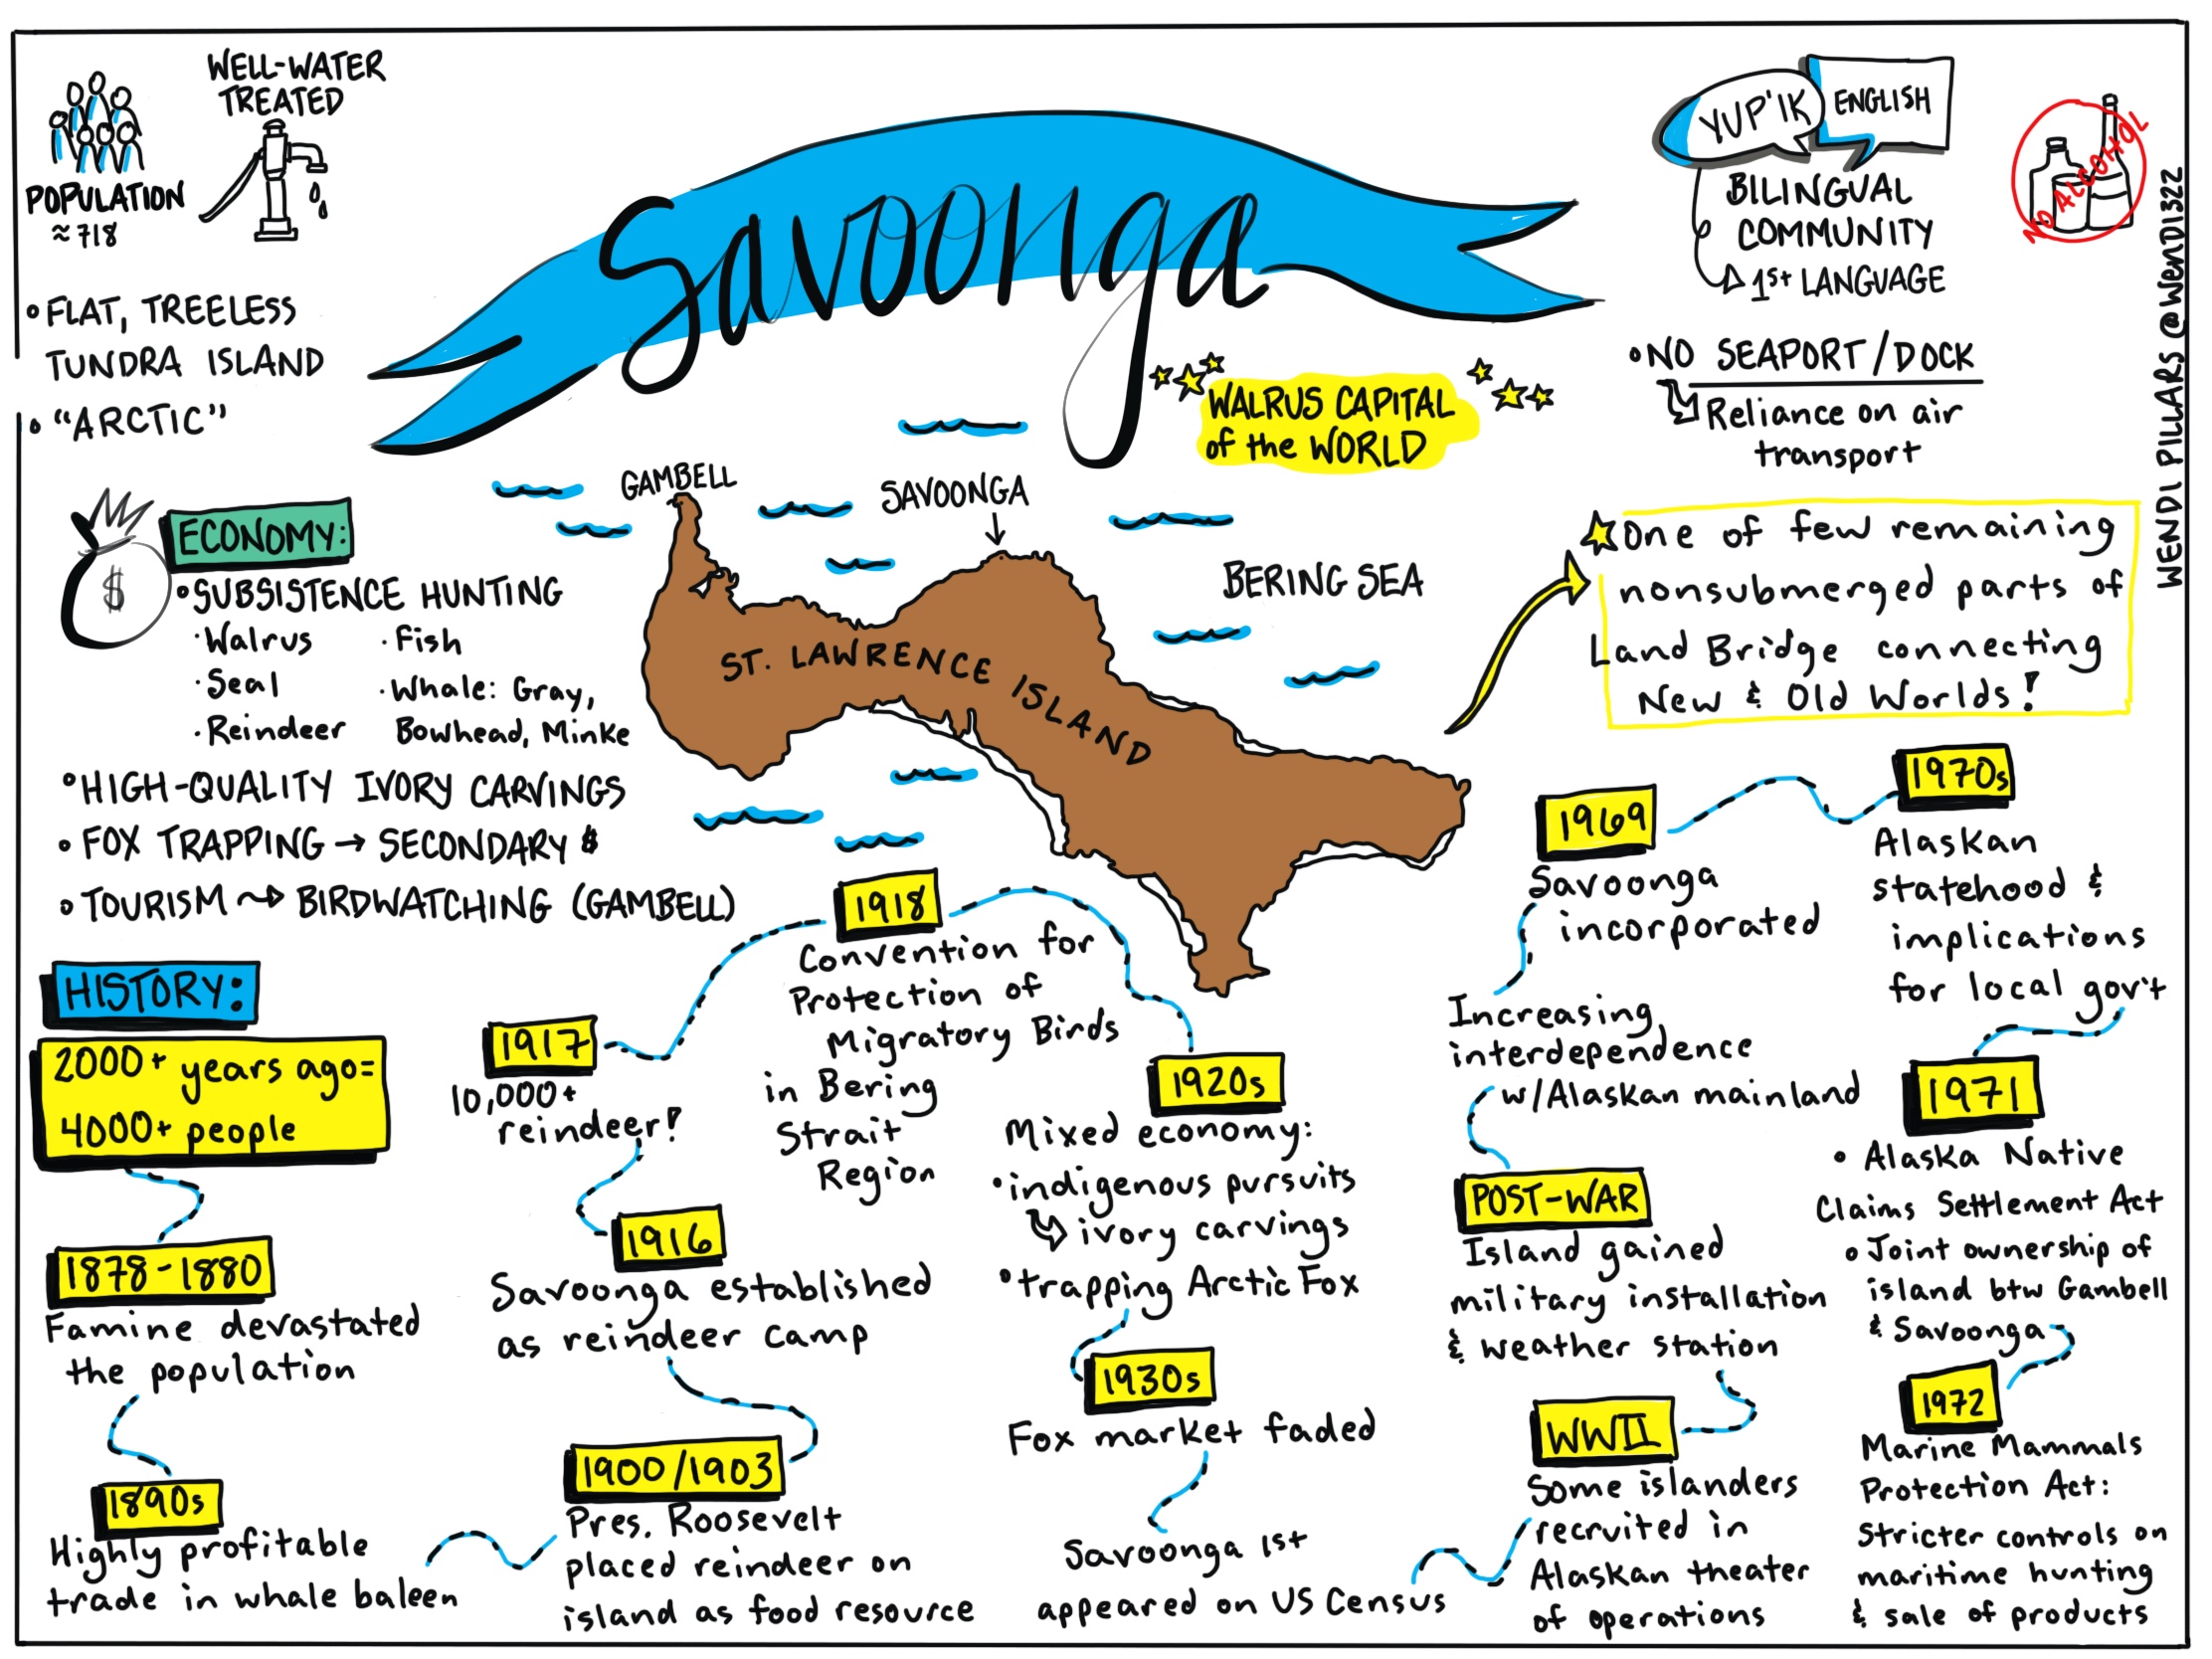 WELL-WATER
TREATED
POPULATION
≈ 718
• FLAT, TREELESS
TUNDRA ISLAND
• "ARCTIC"
Savoonga
WALRUS CAPITAL
of the WORLD
YUP'IK
ENGLISH
BILINGUAL
COMMUNITY
1st LANGUAGE
NO ALCOHOL
WENDI PILLARS @WENDI322
• NO SEAPORT/DOCK
Reliance on air
transport
GAMBELL
SAVOONGA
BERING SEA
ST. LAWRENCE ISLAND
One of few remaining
nonsubmerged parts of
Land Bridge connecting
New & Old Worlds!
$
ECONOMY:
• SUBSISTENCE HUNTING
· Walrus
· Seal
· Reindeer
· Fish
· Whale: Gray,
Bowhead, Minke
• HIGH-QUALITY IVORY CARVINGS
• FOX TRAPPING → SECONDARY $
• TOURISM → BIRDWATCHING (GAMBELL)
HISTORY:
2000+ years ago=
4000+ people
1878-1880
Famine devastated
the population
1890s
Highly profitable
trade in whale baleen
1900/1903
Pres. Roosevelt
placed reindeer on
island as food resource
1916
Savoonga established
as reindeer camp
1917
10,000+
reindeer!
1918
Convention for
Protection of
Migratory Birds
in Bering
Strait
Region
1920s
Mixed economy:
• indigenous pursuits
ivory carvings
• trapping Arctic Fox
1930s
Fox market faded
Savoonga 1st
appeared on US Census
WWII
Some islanders
recruited in
Alaskan theater
of operations
POST-WAR
Island gained
military installation
& weather station
Increasing
interdependence
w/Alaskan mainland
1969
Savoonga
incorporated
1970s
Alaskan
statehood &
implications
for local gov't
1971
• Alaska Native
Claims Settlement Act
• Joint ownership of
island btw Gambell
& Savoonga
1972
Marine Mammals
Protection Act:
Stricter controls on
maritime hunting
& sale of products